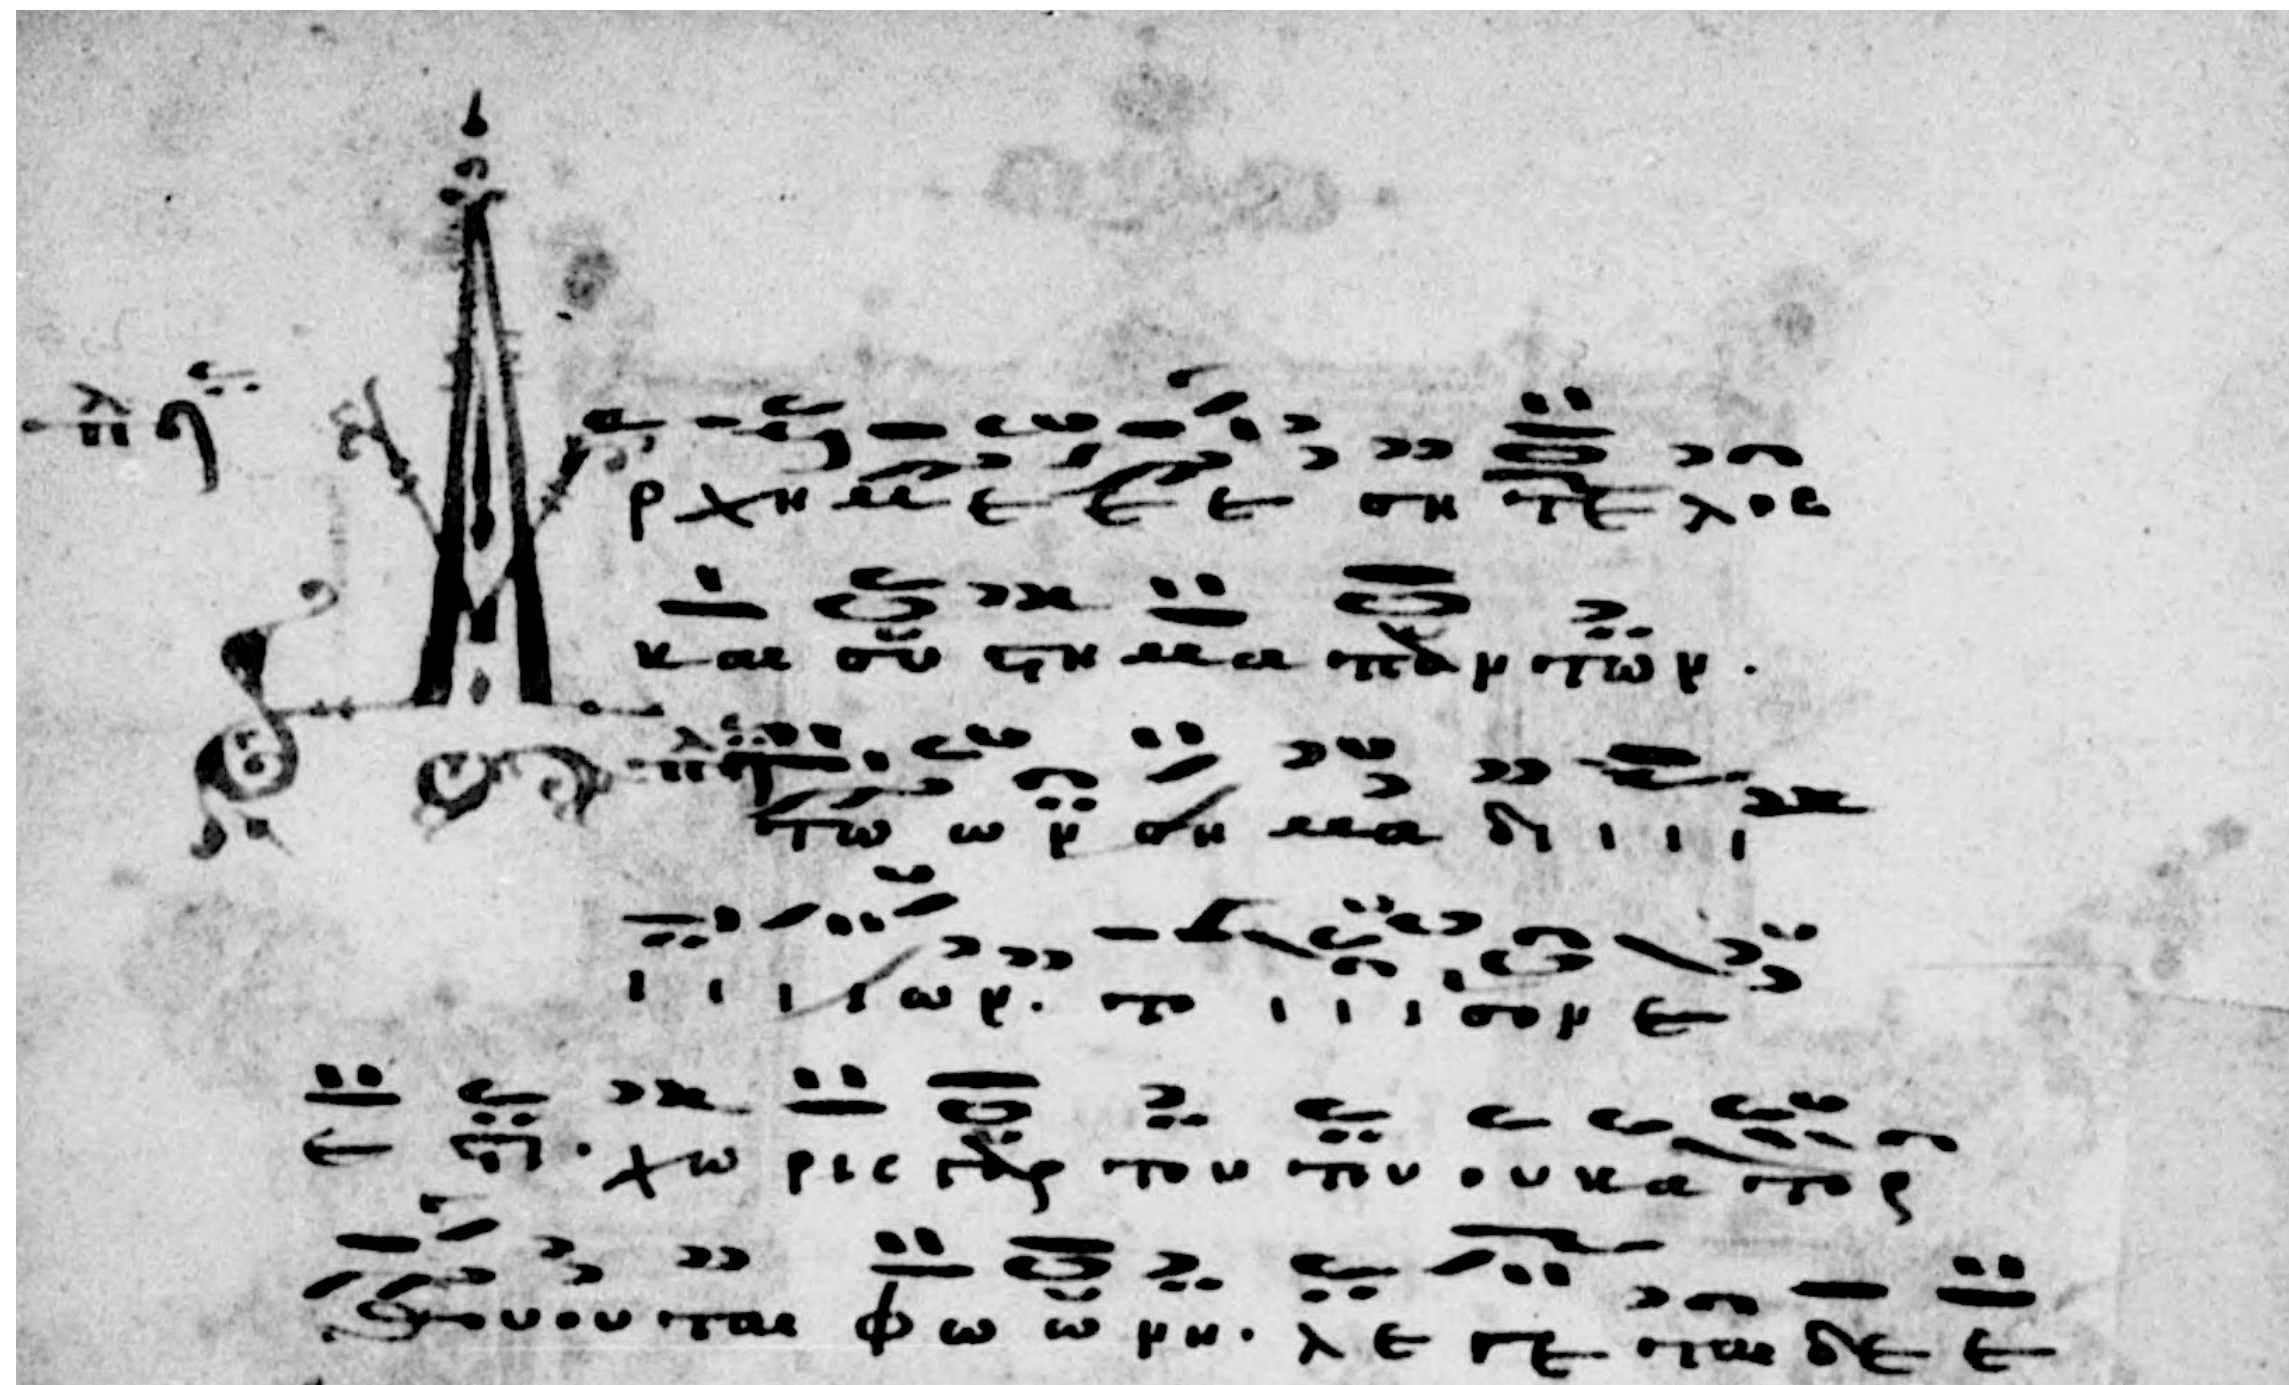 Αρχη με ε ε ση τε λος
και συ στη μα παν των.
τω ω ν ση μα δι ι ι ι
ι ι ι ι ων. το ι ι ι σον ε
ε στι. χω ρις γαρ του του ου κα το ρ
θουου ται φω ω νη. λε γε ται δε ε